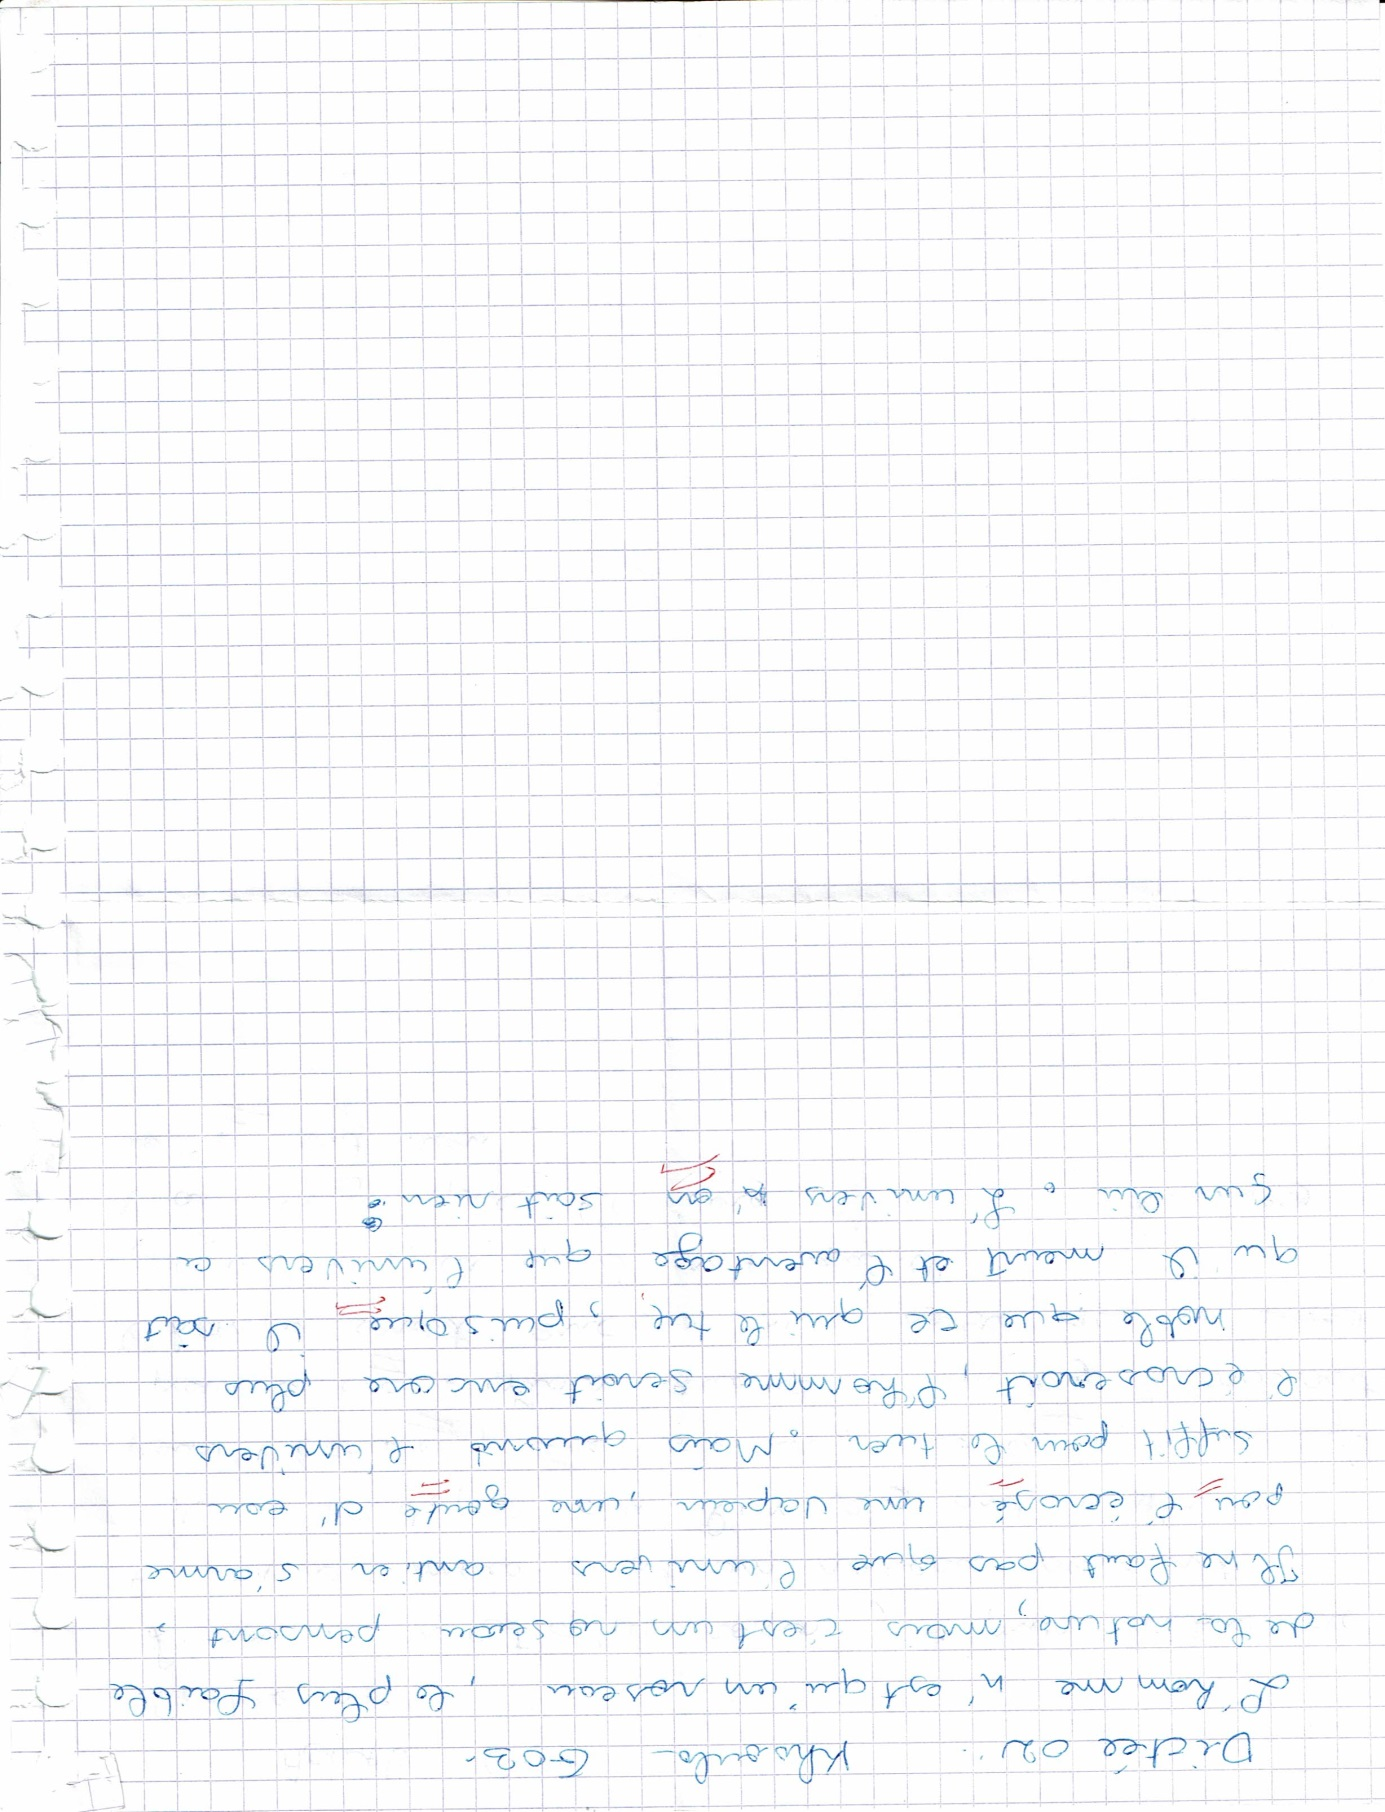 Dictée 02: Khaoula G03.
L'homme n'est qu'un roseau, le plus faible
de la nature, mais c'est un roseau pensant.
Il ne faut pas que l'univers antier s'arme
pou l'écrasé une vapeur, une goute d'eau
suffit pour le tuer. Mais quand l'univers
l'écraserait, l'homme serait encore plus
noble que ce qui le tue, puisque il sait
qu il meurt et l'aventage que l'univers a
sur lui. L'univers n'en sait rien.